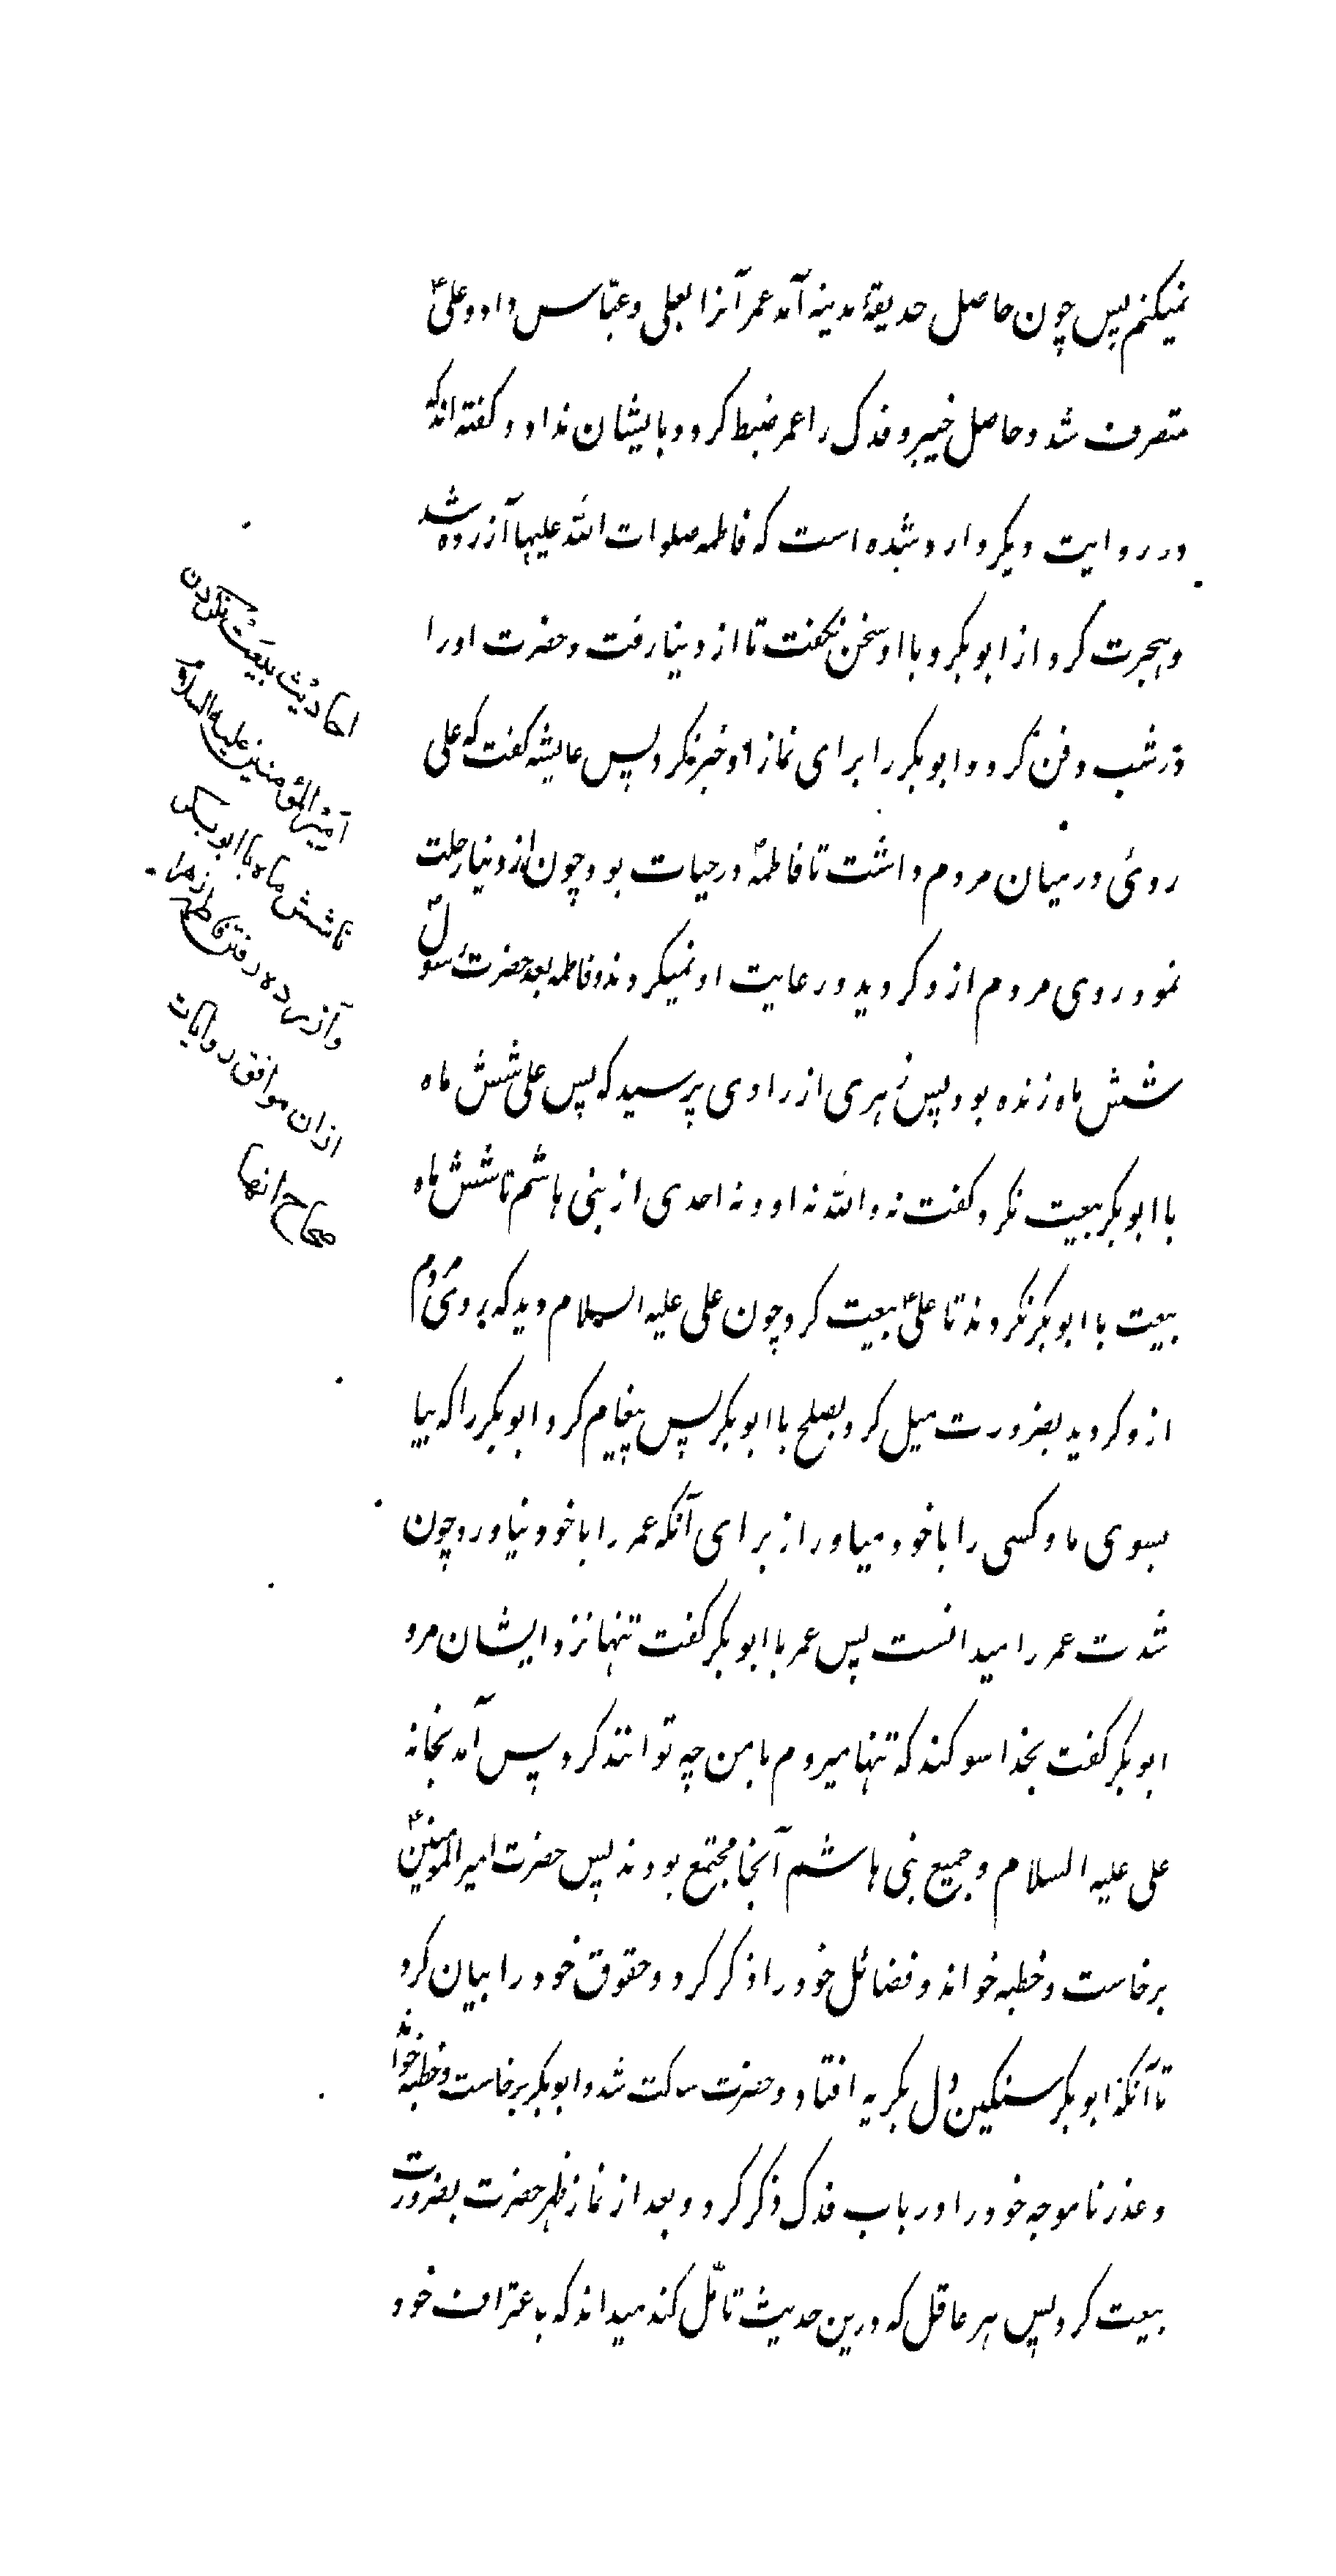 نمیکنم پس چون حاصل حدیقۀ مدینه آمد عمر آنرا بعلی و عبّاس داد و علیؑ
متصرف شد و حاصل خیبر و فدک را عمر ضبط کرد و بایشان نداد و گفته اند که
در روایت دیگر وارد شده است که فاطمه صلوات الله علیها آزرده شد
و هجرت کرد از ابوبکر و با او سخن نگفت تا از دنیا رفت و حضرت او را
در شب دفن کرد و ابوبکر را برای نماز او خبر نکرد پس عایشه گفت که علی
روئی در میان مردم داشت تا فاطمهؑ در حیات بود چون از دنیا رحلت
نمود روی مردم ازو گردید و رعایت او نمیکردند و فاطمه بعد حضرت رسولؐ
شش ماه زنده بود پس زهری از راوی پرسید که پس علی شش ماه
با ابوبکر بیعت نکرد گفت نه والله نه او و نه احدی از بنی هاشم تا شش ماه
بیعت با ابوبکر نکردند تا علیؑ بیعت کرد چون علی علیه السلام دید که بروی مردم
ازو گردید بضرورت میل کرد بصلح با ابوبکر پس پیغام کرد ابوبکر را که بیا
بسوی ما و کسی را با خود میاور از برای آنکه عمر را با خود نیاورد چون
شدت عمر را میدانست پس عمر با ابوبکر گفت تنها نزد ایشان مرو
ابوبکر گفت بخدا سوگند که تنها میروم با من چه توانند کرد پس آمد بخانه
علی علیه السلام و جمیع بنی هاشم آنجا مجتمع بودند پس حضرت امیرالمومنینؑ
برخاست و خطبه خواند و فضائل خود را ذکر کرد و حقوق خود را بیان کرد
تا آنکه ابوبکر سنگین دل بگریه افتاد و حضرت ساکت شد و ابوبکر برخاست و خطبه خواند
و عذر ناموجه خود را در باب فدک ذکر کرد و بعد از نماز ظهر حضرت بضرورت
بیعت کرد پس هر عاقل که درین حدیث تامّل کند میداند که باعتراف خود
احادیث بیعت نکردن
امیرالمؤمنین علیه السلام
تا شش ماه با ابوبکر
و آزرده رفتن فاطمه زهرا
ازان موافق روایات
صحاح انها